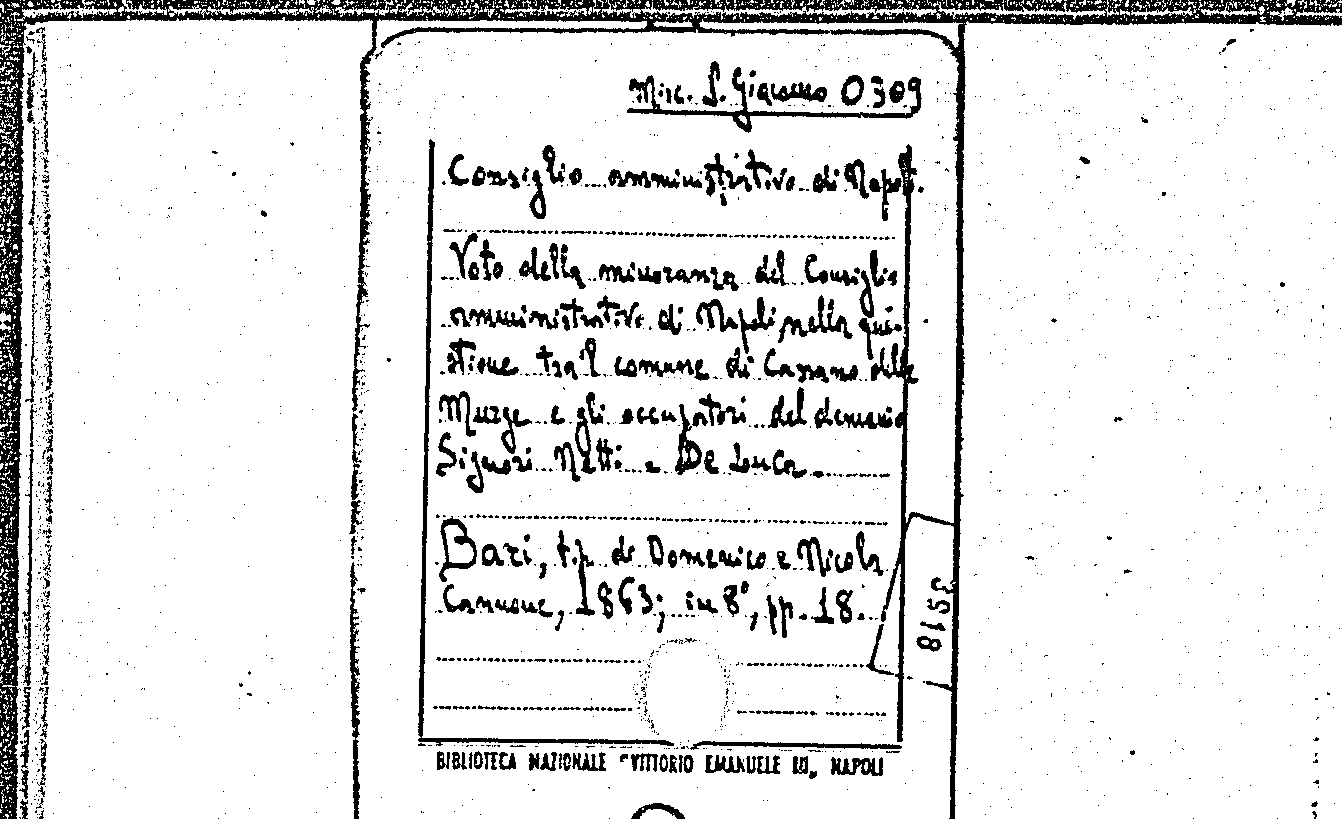 Misc. S. Giacomo 0309
Consiglio amministrativo di Napoli.
Voto della minoranza del Consiglio
amministrativo di Napoli, nella qui-
stione tra 'l comune di Cassano delle
Murge e gli occupatori del demanio
Signori Natti e De Luca.
Bari, tip. di Domenico e Nicola
Cannone, 1863; in 8°, pp. 18.
3518
BIBLIOTECA NAZIONALE "VITTORIO EMANUELE III„ NAPOLI